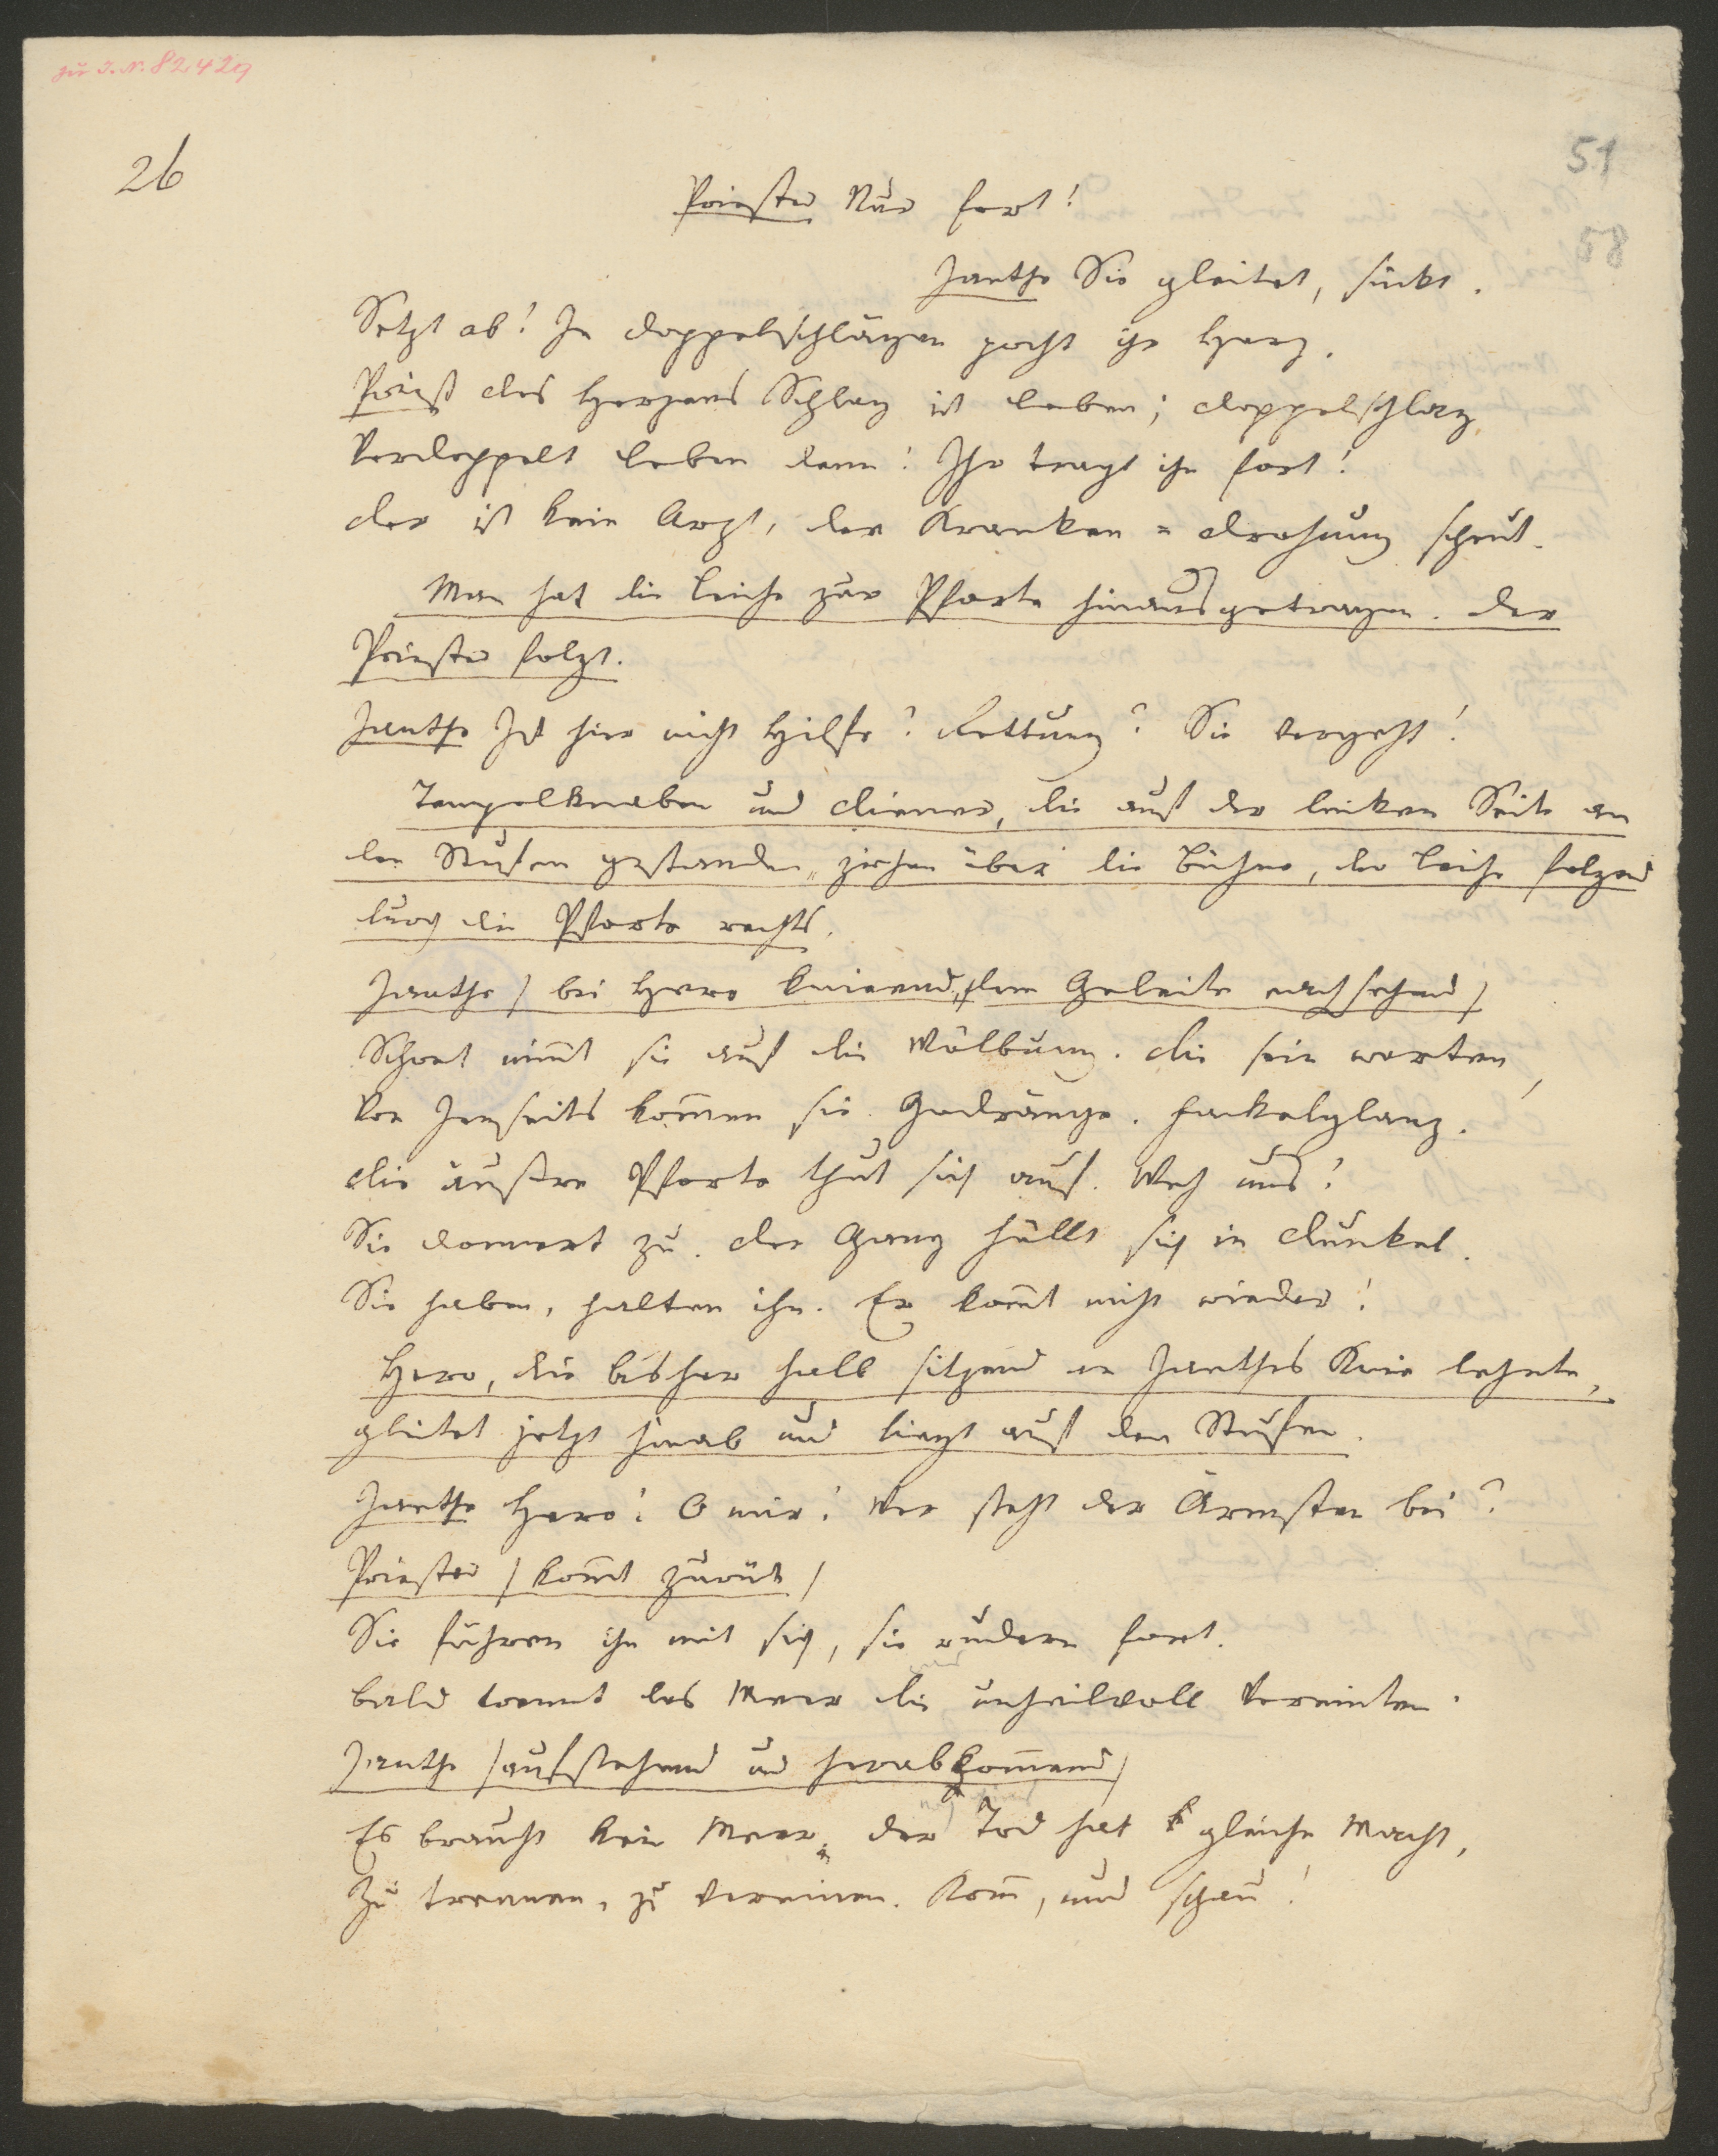 zu I.N. 82429
26
51
58
Priester Nur fort!
Janthe Sie gleitet, sinkt.
Setzt ab! In Doppelschlägen pocht ihr Herz.
Priest Des Herzens Schlag ist Leben; Doppelschlag
Verdoppelt Leben denn! Ihr tragt ihn fort!
Der ist kein Arzt, der Kranken = Drohung scheut.
Man hat die Leiche zur Pforte hinausgetragen. Der
Priester folgt.
Janthe Ist hier nicht Hilfe? Rettung? Sie vergeht!
Tempelknaben und Diener, die auf der linken Seite an
den Stufen gestanden, ziehen über die Bühne, der Leiche folgend
durch die Pforte rechts.
Janthe /bei Hero knieend, dem Geleite nachsehend/
Schon nimt sie auf die Wölbung. Die sein warten,
Von Jenseits kommen sie. Gedränge. Fackelglanz.
Die äußre Pforte thut sich auf. Weh uns!
Sie donnert zu. Der Gang hüllt sich in Dunkel.
Sie haben, halten ihn. Er komt nicht wieder!
Hero, die bisher halb sitzend an Janthes Knie lehnte,
gleitet jetzt herab und liegt auf den Stufen.
Janthe Hero! O mir! Wer steht der Ärmsten bei?
Priester /komt zurück/
Sie führen ihn mit sich, sie rudern fort.
Bald trennt das Meer die unheilvoll Vereinten.
Janthe /aufstehend und herabkommend/
Es braucht kein Meer, der Tod hat gleiche Macht,
Zu trennen, zu vereinen. Kom, und schau!